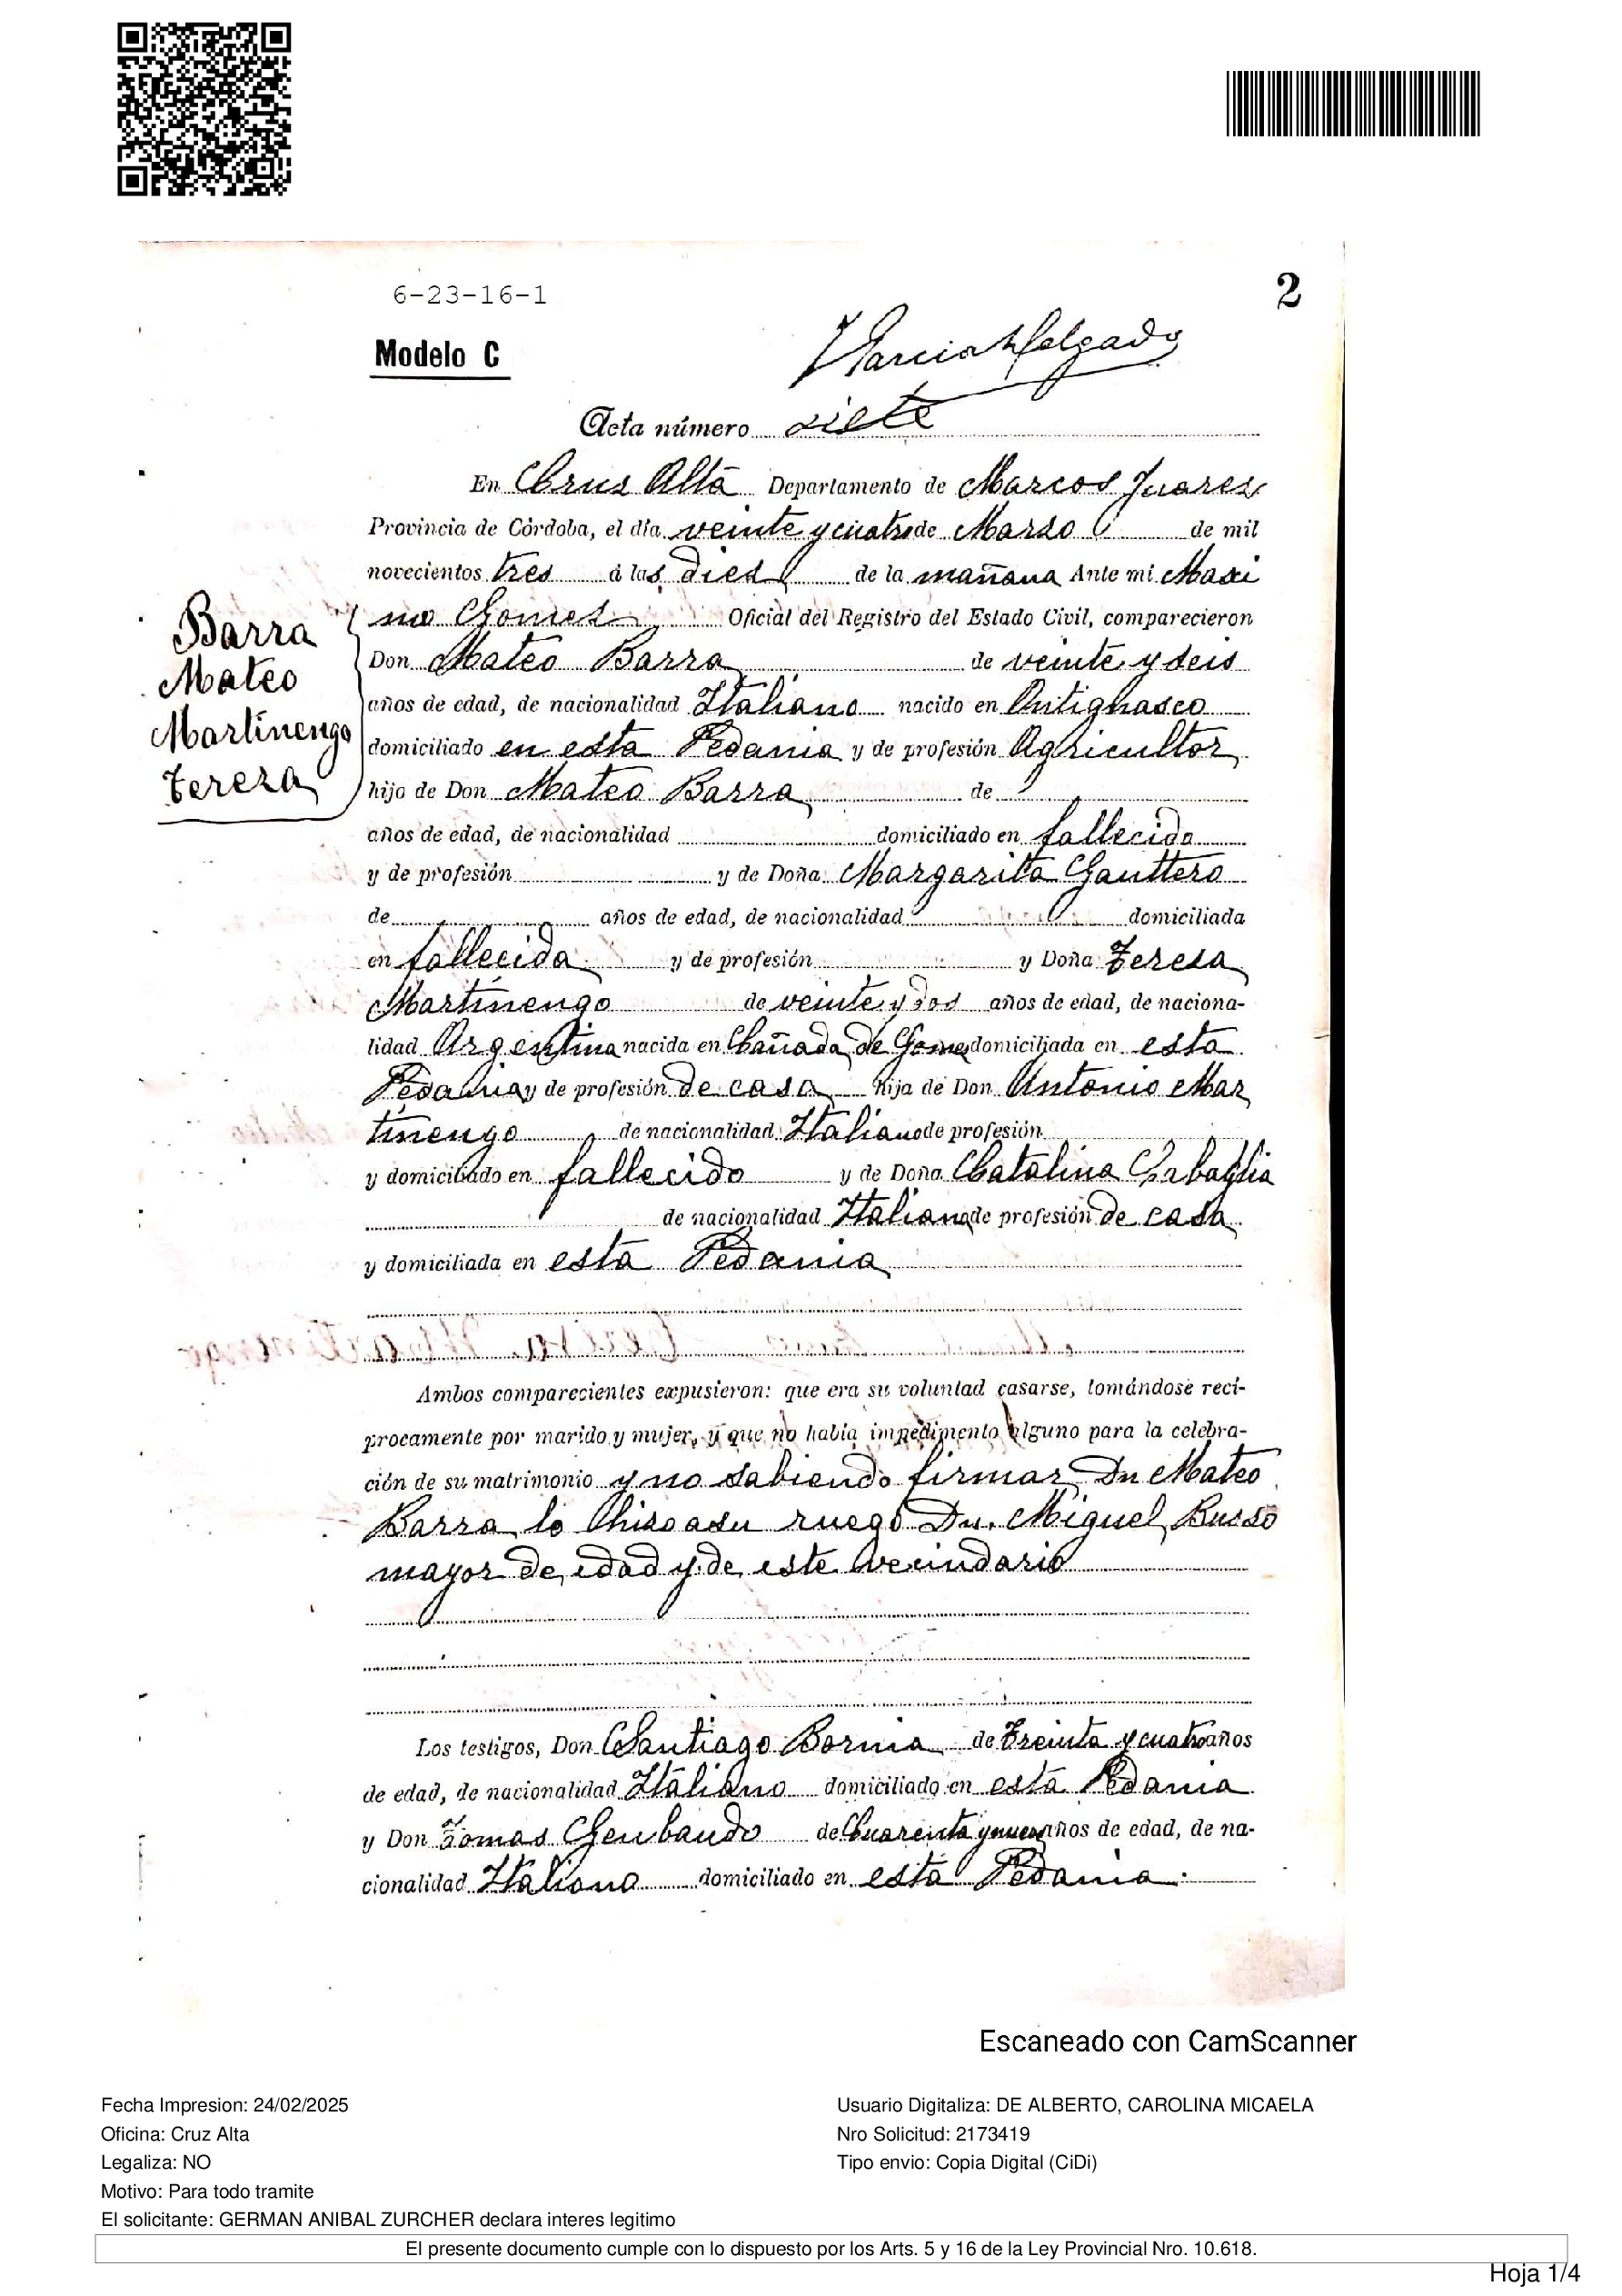 6-23-16-1
2
Modelo C
Acta número siete
En Crus Alta Departamento de Marcos Juares
Provincia de Córdoba, el día veinte y cuatro de Marso de mil
novecientos tres á las dies de la mañana Ante mi Maxi
mo Gomes Oficial del Registro del Estado Civil, comparecieron
Barra
Mateo
Martinengo
Teresa
Don Mateo Barra de veinte y seis
años de edad, de nacionalidad Italiano nacido en Antignasco
domiciliado en esta Pedania y de profesión Agricultor
hijo de Don Mateo Barra de
años de edad, de nacionalidad domiciliado en fallecido
y de profesión y de Doña Margarita Gauttero
de años de edad, de nacionalidad domiciliada
en fallecida y de profesión y Doña Teresa
Martinengo de veinte y dos años de edad, de naciona-
lidad Argentina nacida en Cañada de Gome domiciliada en esta
Pedania y de profesión de casa hija de Don Antonio Mar
tinengo de nacionalidad Italiano de profesión
y domiciliado en fallecido y de Doña Catalina
de nacionalidad Italiana de profesión de casa
y domiciliada en esta Pedania
Ambos comparecientes expusieron: que era su voluntad casarse, tomándose recí-
procamente por marido y mujer, y que no había impedimento alguno para la celebra-
ción de su matrimonio y no sabiendo firmar Dn Mateo
Barra lo hiso a su ruego Dn. Miguel Russo
mayor de edad y de este vecindario
Los testigos, Don Santiago Bornia de Treinta y cuatro años
de edad, de nacionalidad Italiano domiciliado en esta Pedania
y Don Tomas Geubaudo de Cuarenta y nueve años de edad, de na-
cionalidad Italiano domiciliado en esta Pedania
Escaneado con CamScanner
Fecha Impresion: 24/02/2025
Oficina: Cruz Alta
Legaliza: NO
Motivo: Para todo tramite
El solicitante: GERMAN ANIBAL ZURCHER declara interes legitimo
Usuario Digitaliza: DE ALBERTO, CAROLINA MICAELA
Nro Solicitud: 2173419
Tipo envio: Copia Digital (CiDi)
El presente documento cumple con lo dispuesto por los Arts. 5 y 16 de la Ley Provincial Nro. 10.618.
Hoja 1/4